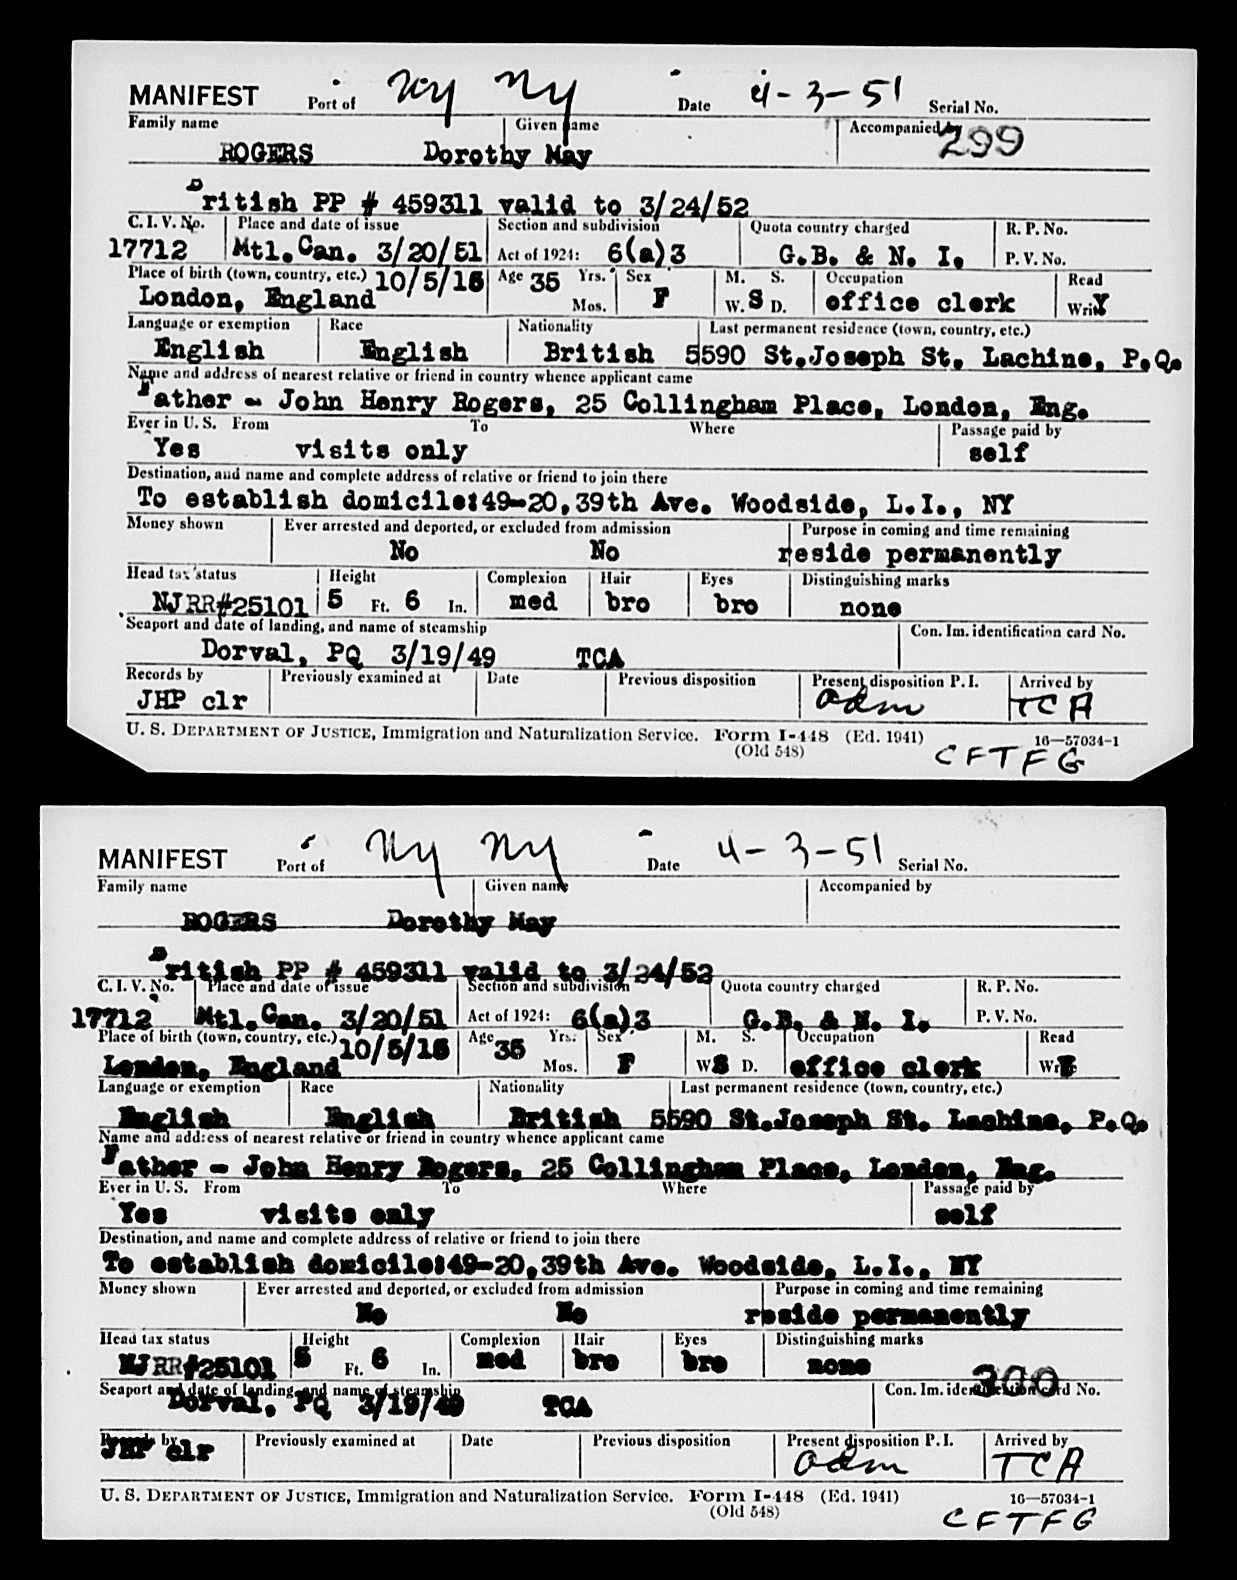 MANIFEST Port of NY NY Date 4-3-51 Serial No.
Family name Given name Accompanied by 299
ROGERS Dorothy May
British PP # 459311 valid to 3/24/52
C. I. V. No. Place and date of issue Section and subdivision Quota country charged R. P. No.
17712 Mtl.Can. 3/20/51 Act of 1924: 6(a)3 G.B. & N. I. P. V. No.
Place of birth (town, country, etc.) 10/5/15 Age 35 Yrs. Sex M. S. Occupation Read
London, England Mos. F W. S D. office clerk Write Y
Language or exemption Race Nationality Last permanent residence (town, country, etc.)
English English British 5590 St.Joseph St. Lachine, P.Q.
Name and address of nearest relative or friend in country whence applicant came
Father - John Henry Rogers, 25 Collingham Place, London, Eng.
Ever in U. S. From To Where Passage paid by
Yes visits only self
Destination, and name and complete address of relative or friend to join there
To establish domicile:49-20,39th Ave. Woodside, L.I., NY
Money shown Ever arrested and deported, or excluded from admission Purpose in coming and time remaining
No No reside permanently
Head tax status Height Complexion Hair Eyes Distinguishing marks
NJRR#25101 5 Ft. 6 In. med bro bro none
Seaport and date of landing, and name of steamship Con. Im. identification card No.
Dorval, PQ 3/19/49 TCA
Records by Previously examined at Date Previous disposition Present disposition P. I. Arrived by
JHP clr adm TCA
U. S. DEPARTMENT OF JUSTICE, Immigration and Naturalization Service. Form I-448 (Ed. 1941) 16—57034-1
(Old 548) CFTFG
MANIFEST Port of NY NY Date 4-3-51 Serial No.
Family name Given name Accompanied by
ROGERS Dorothy May
British PP # 459311 valid to 3/24/52
C. I. V. No. Place and date of issue Section and subdivision Quota country charged R. P. No.
17712 Mtl.Can. 3/20/51 Act of 1924: 6(a)3 G.B. & N. I. P. V. No.
Place of birth (town, country, etc.) 10/5/15 Age 35 Yrs. Sex M. S. Occupation Read
London, England Mos. F W. S D. office clerk Write Y
Language or exemption Race Nationality Last permanent residence (town, country, etc.)
English English British 5590 St.Joseph St. Lachine, P.Q.
Name and address of nearest relative or friend in country whence applicant came
Father - John Henry Rogers, 25 Collingham Place, London, Eng.
Ever in U. S. From To Where Passage paid by
Yes visits only self
Destination, and name and complete address of relative or friend to join there
To establish domicile:49-20,39th Ave. Woodside, L.I., NY
Money shown Ever arrested and deported, or excluded from admission Purpose in coming and time remaining
No No reside permanently
Head tax status Height Complexion Hair Eyes Distinguishing marks
NJRR#25101 5 Ft. 6 In. med bro bro none
Seaport and date of landing, and name of steamship Con. Im. identification card No. 300
Dorval, PQ 3/19/49 TCA
Records by Previously examined at Date Previous disposition Present disposition P. I. Arrived by
JHP clr adm TCA
U. S. DEPARTMENT OF JUSTICE, Immigration and Naturalization Service. Form I-448 (Ed. 1941) 16—57034-1
(Old 548) CFTFG